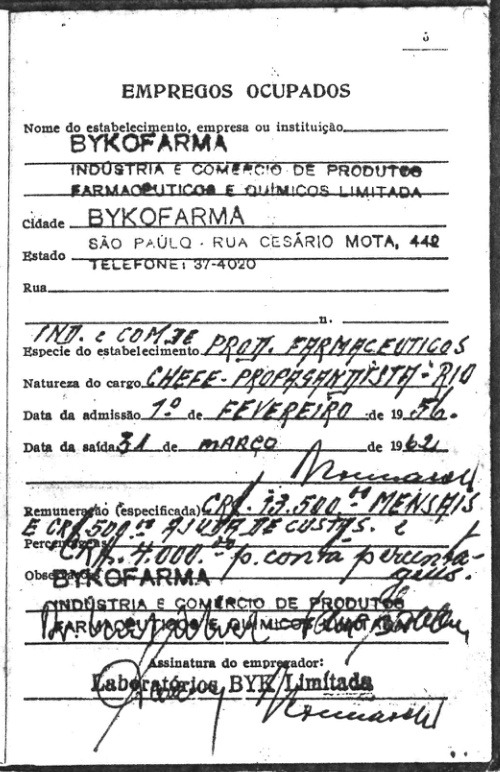 EMPREGOS OCUPADOS
Nome do estabelecimento, empresa ou instituição
BYKOFARMA
INDÚSTRIA E COMERCIO DE PRODUTOS
FARMACEUTICOS E QUÍMICOS LIMITADA
Cidade BYKOFARMA
SÃO PAULO - RUA CESÁRIO MOTA, 442
Estado
TELEFONE: 37-4020
Rua
n.
IND. e COM. DE
Especie do estabelecimento PROD. FARMACEUTICOS
Natureza do cargo CHEFE-PROPAGANDISTA-RIO
Data da admissão 1º de FEVEREIRO de 1956.
Data da saída 31 de MARÇO de 1962
Remuneração (especificada) CR$. 13.500,00 MENSAIS
E CR$ 500,00 AJUDA DE CUSTAS. e
CR$. 4.000,00 p. conta percenta-
gens.
BYKOFARMA
INDÚSTRIA E COMERCIO DE PRODUTOS
FARMACEUTICOS E QUÍMICOS
Assinatura do empregador:
Laboratórios BYK Limitada